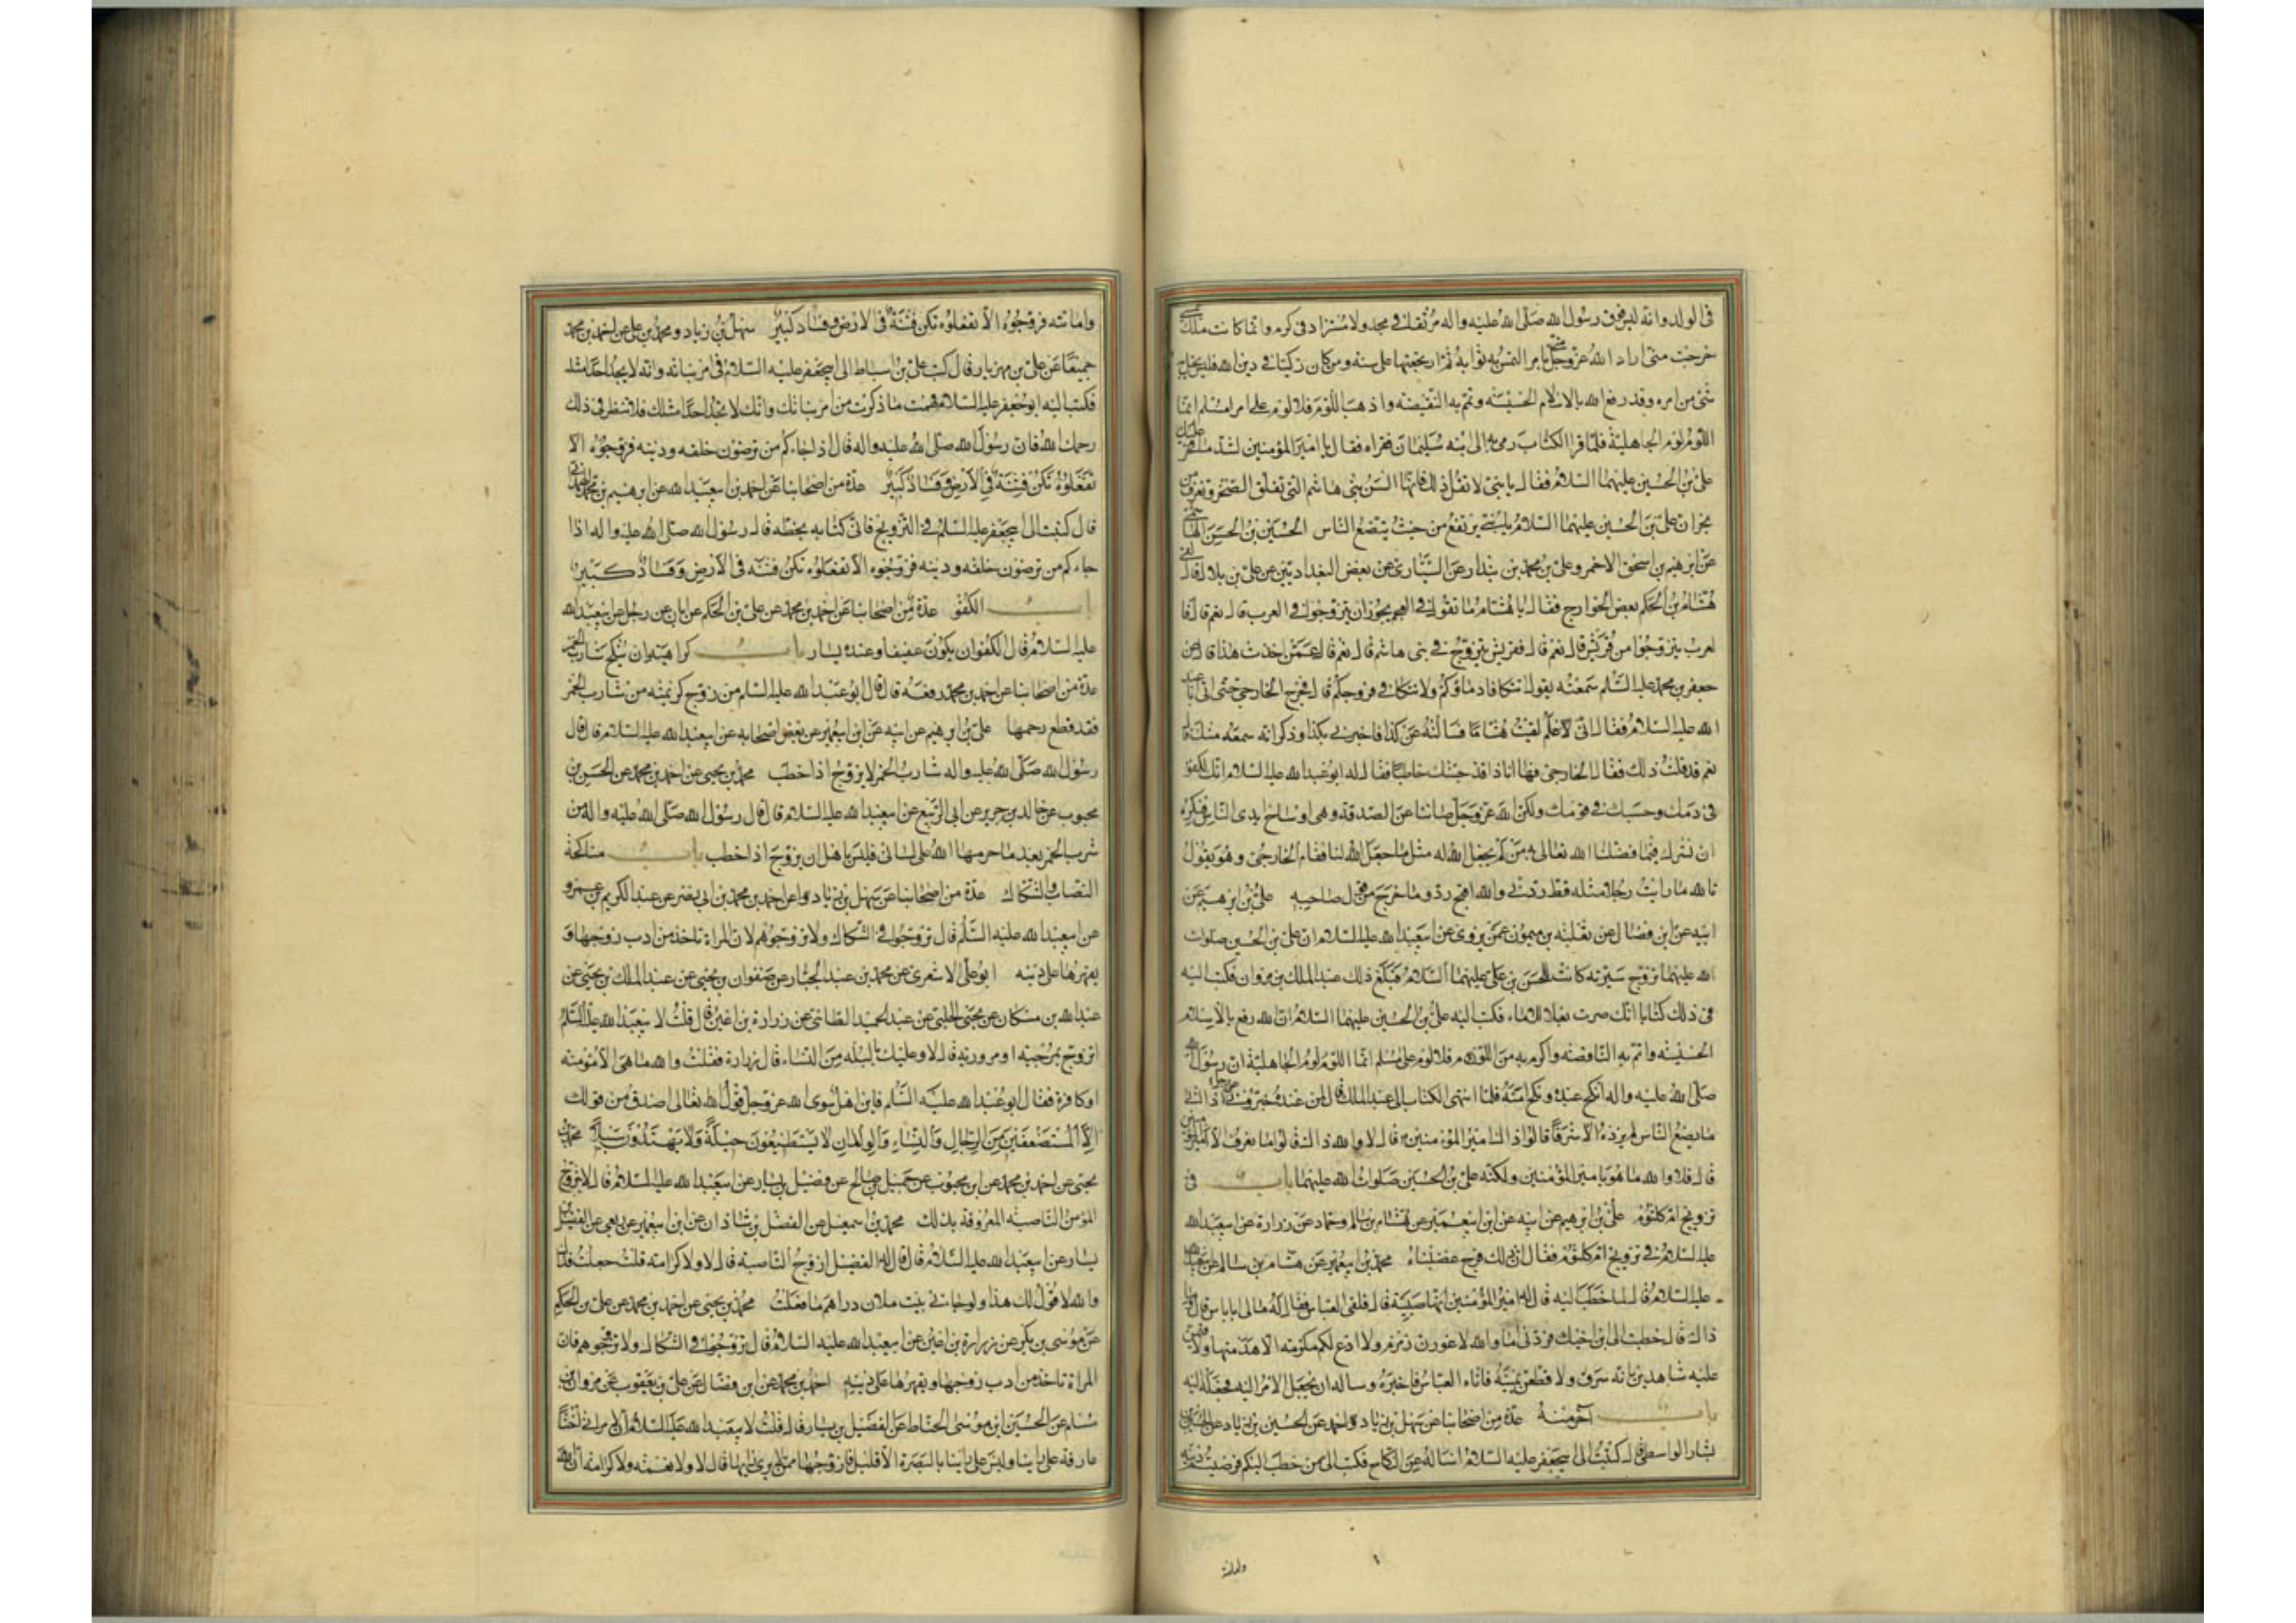 فى الولد وانه ليس فوق رسول الله صلى الله عليه واله مرتقى فى مجد ولا مستزاد فى كرم وانما كانت ملك يمينى
خرجت متى اراد الله عز وجل منى بامر التمس به ثوابه ثم ارتجعتها على سنته ومن كان زكيا فى دين الله فليس يخل به
شئ من امره وقد رفع الله بالاسلام الخسيسة وتمم به النقيصة واذهب اللؤم فلا لؤم على امرء مسلم انما
اللؤم لؤم الجاهلية فلما قرا الكتاب رمى به الى ابنه سليمان فقراه فقال يا امير المؤمنين لشد ما فخر عليك
على بن الحسين عليهما السلام فقال يا بنى لا تقل ذلك فانها السن بنى هاشم التى تفلق الصخر وتغرف من
بحر ان على بن الحسين عليهما السلام يا بنى يرتفع من حيث يتضع الناس الحسين بن الحسن الهاشمى
عن ابرهيم بن اسحق الاحمر وعلى بن محمد بن بندار عن السيارى عن بعض البغداديين عن على بن بلال قال لقى
هشام بن الحكم بعض الخوارج فقال يا هشام ما تقول فى العجم يجوز ان يتزوجوا فى العرب قال نعم قال فا
لعرب يتزوجوا من قريش قال نعم قال فقريش يتزوج فى بنى هاشم قال نعم قال عمن اخذت هذا قال عن
جعفر بن محمد عليه السلم سمعته يقول اتتكافا دماؤكم ولا تتكافى فروجكم قال فخرج الخارجى حتى اتى ابا عبد
الله عليه السلام فقال انى لاعلم لقيت هشاما فسالته عن كذا فاخبرنى بكذا وذكر انه سمعه منك قال
نعم قد قلت ذلك فقال الخارجى فها انا ذا قد جئتك خاطبا فقال له ابو عبد الله عليه السلام انك لكفو
فى دمك وحسبك فى قومك ولكن الله عز وجل صاننا عن الصدقة وهى اوساخ ايدى الناس فنكره
ان نشرك فيما فضلنا الله تعالى به من لم يجعل الله له مثل ما جعل الله لنا فقام الخارجى وهو يقول
تالله ما رايت رجلا مثله قط ردنى والله اقبح رد وما خرج من قول صاحبه على بن ابرهيم عن
ابيه عن ابن فضال عن ثعلبة بن ميمون عمن يروى عن ابيعبد الله عليه السلام ان على بن الحسين صلوات
الله عليهما تزوج سرية كانت للحسن بن على عليهما السلام فبلغ ذلك عبد الملك بن مروان فكتب اليه
فى ذلك كتابا انك صرت بعل الاماء فكتب اليه على بن الحسين عليهما السلام ان الله رفع بالاسلام
الخسيسة واتم به الناقصة واكرم به من اللؤم فلا لؤم على مسلم انما اللؤم لؤم الجاهلية ان رسول الله
صلى الله عليه واله انكح عبده ونكح امته فلما انتهى الكتاب الى عبد الملك قال لمن عنده خبرونى عن رجل اذا اتى
ما يضع الناس لم يزده الا شرفا قالوا ذاك امير المؤمنين قال لا والله ذاك قالوا ما نعرف الا امير المؤمنين
قال فلا والله ما هو بامير المؤمنين ولكنه على بن الحسين صلوات الله عليهما باب فى
تزويج ام كلثوم على بن ابرهيم عن ابيه عن ابن ابيعمير عن هشام بن سالم وحماد عن زرارة عن ابيعبد الله
عليه السلام فى تزويج ام كلثوم فقال ان ذلك فرج غصبناه محمد بن ابيعمير عن هشام بن سالم عن ابيعبد الله
عليه السلام قال لما خطب اليه قال له امير المؤمنين انها صبية قال فلقى العباس فقال له مالى اباس قال وما
ذاك قال خطبت الى ابن اخيك فردنى اما والله لاعورن زمزم ولا ادع لكم مكرمة الا هدمتها ولاقيمن
عليه شاهدين بانه سرق ولاقطعن يمينه فاتاه العباس فاخبره وساله ان يجعل الامر اليه فجعله اليه
باب آخر منه عدة من اصحابنا عن سهل بن زياد واحمد عن الحسين بن زياد عن الحسين بن
بشار الواسطى قال كتبت الى ابيجعفر عليه السلام اساله عن النكاح فكتب الى من خطب اليكم فرضيتم دينه
وامانته
وامانته فزوجوه الا تفعلوه تكن فتنة فى الارض وفساد كبير سهل بن زياد ومحمد بن على عن احمد بن محمد
جميعا عن على بن مهزيار قال كتب على بن اسباط الى ابيجعفر عليه السلام فى امر بناته وانه لا يجد احدا مثله
فكتب اليه ابو جعفر عليه السلام فهمت ما ذكرت من امر بناتك وانك لا تجد احدا مثلك فلا تنظر فى ذلك
رحمك الله فان رسول الله صلى الله عليه واله قال اذا جاءكم من ترضون خلقه ودينه فزوجوه الا
تفعلوه تكن فتنة فى الارض وفساد كبير عدة من اصحابنا عن احمد بن ابيعبد الله عن ابرهيم بن محمد الهمدانى
قال كتبت الى ابيجعفر عليه السلم فى التزويج فاتانى كتابه بخطه قال رسول الله صلى الله عليه واله اذا
جاءكم من ترضون خلقه ودينه فزوجوه الا تفعلوه تكن فتنة فى الارض وفساد كبير
باب الكفو عدة من اصحابنا عن احمد بن محمد عن على بن الحكم عن ابان عن رجل عن ابيعبد الله
عليه السلام قال الكفو ان يكون عفيفا وعنده يسار باب كراهية ان ينكح شارب الخمر
عدة من اصحابنا عن احمد بن محمد رفعه قال قال ابو عبد الله عليه السلم من زوج كريمته من شارب الخمر
فقد قطع رحمها على بن ابرهيم عن ابيه عن ابن ابيعمير عن بعض اصحابه عن ابيعبد الله عليه السلام قال قال
رسول الله صلى الله عليه واله شارب الخمر لا يزوج اذا خطب محمد بن يحيى عن احمد بن محمد عن الحسن بن
محبوب عن خالد بن جرير عن ابى الربيع عن ابيعبد الله عليه السلام قال قال رسول الله صلى الله عليه واله من
شرب الخمر بعد ما حرمها الله على لسانى فليس باهل ان يزوج اذا خطب باب مناكحة
النصاب والشكاك عدة من اصحابنا عن سهل بن زياد وعن احمد بن محمد بن ابى نصر عن عبد الكريم بن عمرو
عن ابيعبد الله عليه السلم قال تزوجوا فى الشكاك ولا تزوجوهم لان المراة تاخذ من ادب زوجها و
يقهرها على دينه ابو على الاشعرى عن محمد بن عبد الجبار عن صفوان بن يحيى عن عبد الملك بن يحيى عن
عبد الله بن مسكان عن يحيى الحلبى عن عبد الحميد الطائى عن زرارة بن اعين قال قلت لابيعبد الله عليه السلم
اتزوج بمرجئة او حرورية قال لا وعليك بالبله من النساء قال زرارة فقلت والله ما هى الا مؤمنة
او كافرة فقال ابو عبد الله عليه السلم فاين اهل ثنوى الله عز وجل قول الله تعالى اصدق من قولك
الا المستضعفين من الرجال والنساء والولدان لا يستطيعون حيلة ولا يهتدون سبيلا محمد بن
يحيى عن احمد بن محمد عن ابن محبوب عن جميل بن صالح عن فضيل بن يسار عن ابيعبد الله عليه السلام قال لا يتزوج
المؤمن الناصبة المعروفة بذلك محمد بن اسمعيل عن الفضل بن شاذان عن ابن ابيعمير عن ربعى عن الفضيل بن
يسار عن ابيعبد الله عليه السلام قال قال له الفضيل ازوج الناصبة قال لا ولا كرامة قلت جعلت فداك
والله لاقول لك هذا ولو جاءنى ببيت ملان دراهم ما فعلت محمد بن يحيى عن احمد بن محمد عن على بن الحكم
عن موسى بن بكر عن زرارة بن اعين عن ابيعبد الله عليه السلام قال تزوجوا فى الشكاك ولا تزوجوهم فان
المراة تاخذ من ادب زوجها ويقهرها على دينه احمد بن محمد عن ابن فضال عن على بن يعقوب عن مروان بن
مسلم عن الحسين بن موسى الحناط عن الفضيل بن يسار قال قلت لابيعبد الله عليه السلام ان لامراتى اختا
عارفة على راينا وليس على راينا بالبصرة الا قليل فازوجها ممن لا يرى رايها قال لا ولا نعمة ولا كرامة ان الله